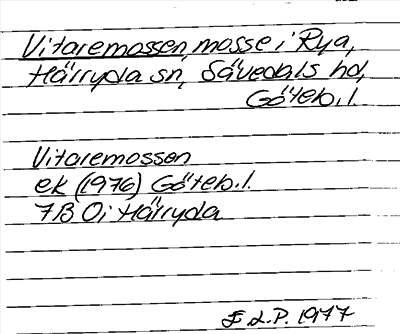 Vitaremossen, mosse i Rya,
Härryda sn, Sävedals hd,
Göteb. l.
Vitaremossen
ek (1976) Göteb. l.
7B 0i Härryda
L.P. 1977